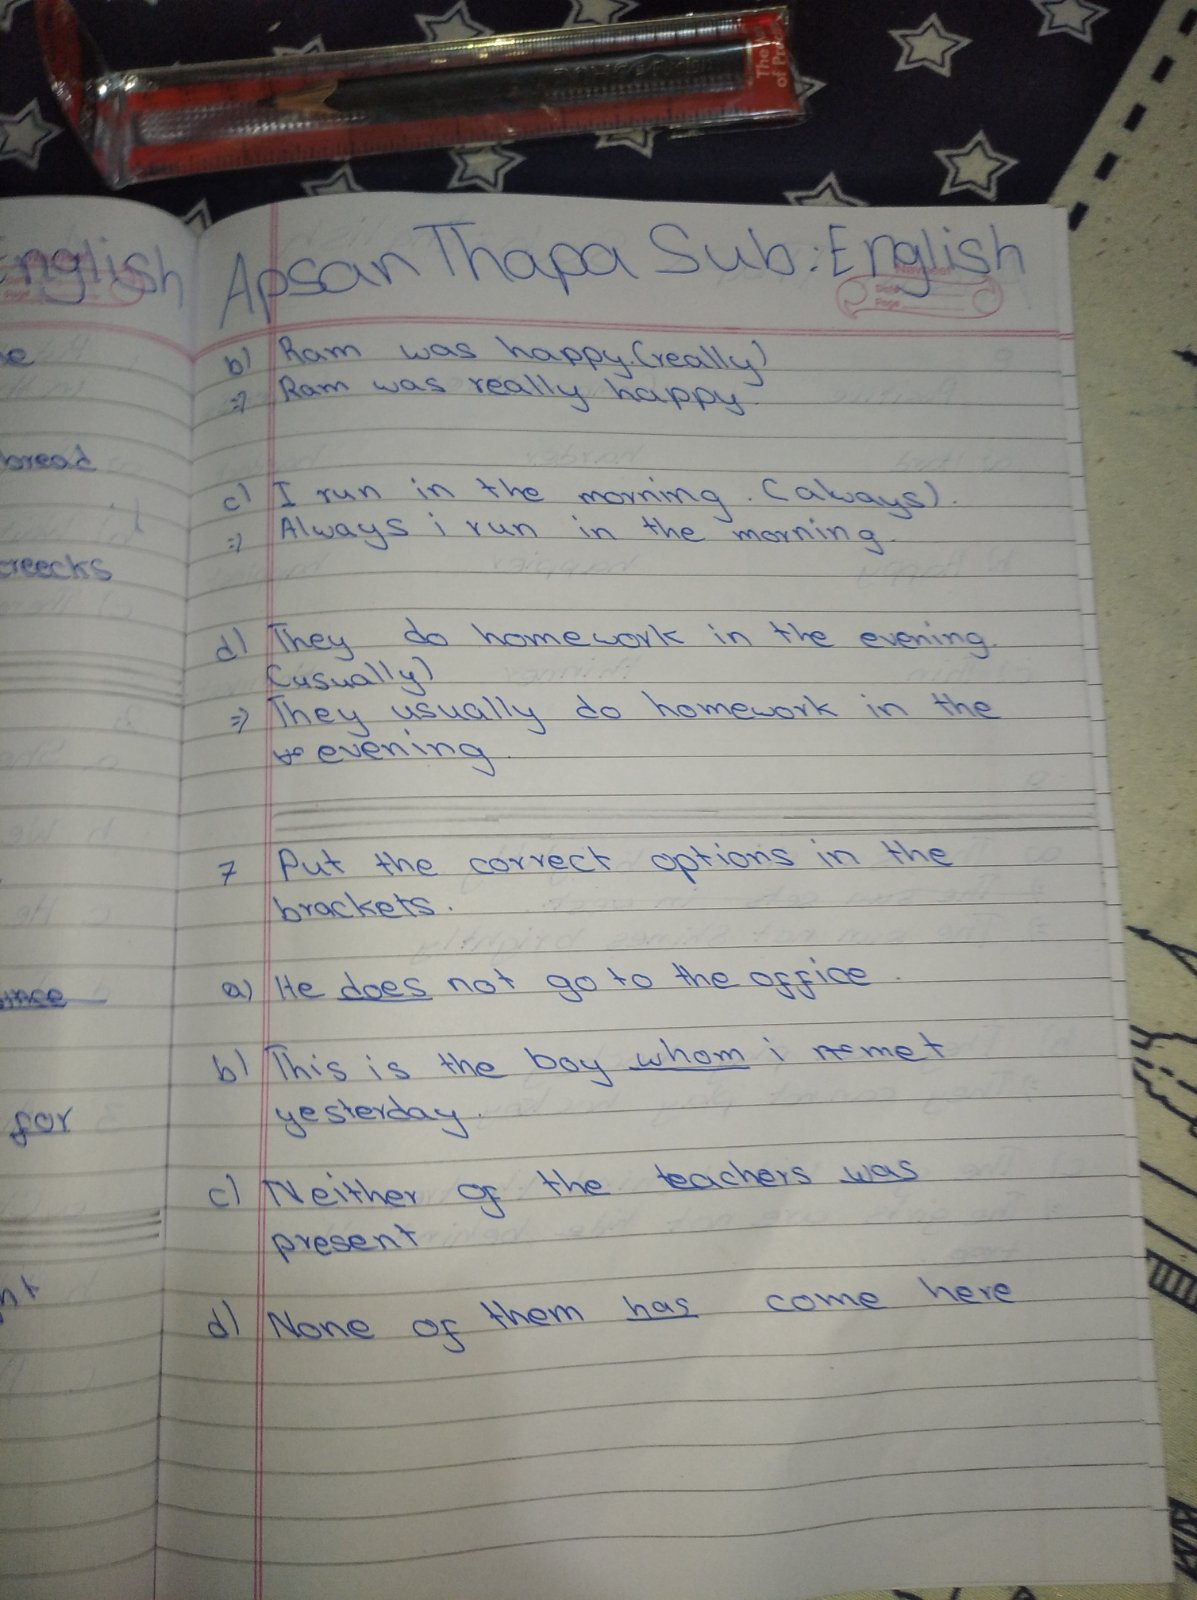 English
bread
creecks
for
Apsan Thapa Sub: English
b) Ram was happy. (really)
=> Ram was really happy.
c) I run in the morning. (always).
=> Always i run in the morning.
d) They do homework in the evening.
(usually)
=> They usually do homework in the
evening.
7 Put the correct options in the
brackets.
a) He does not go to the office.
b) This is the boy whom i met
yesterday.
c) Neither of the teachers was
present
d) None of them has come here